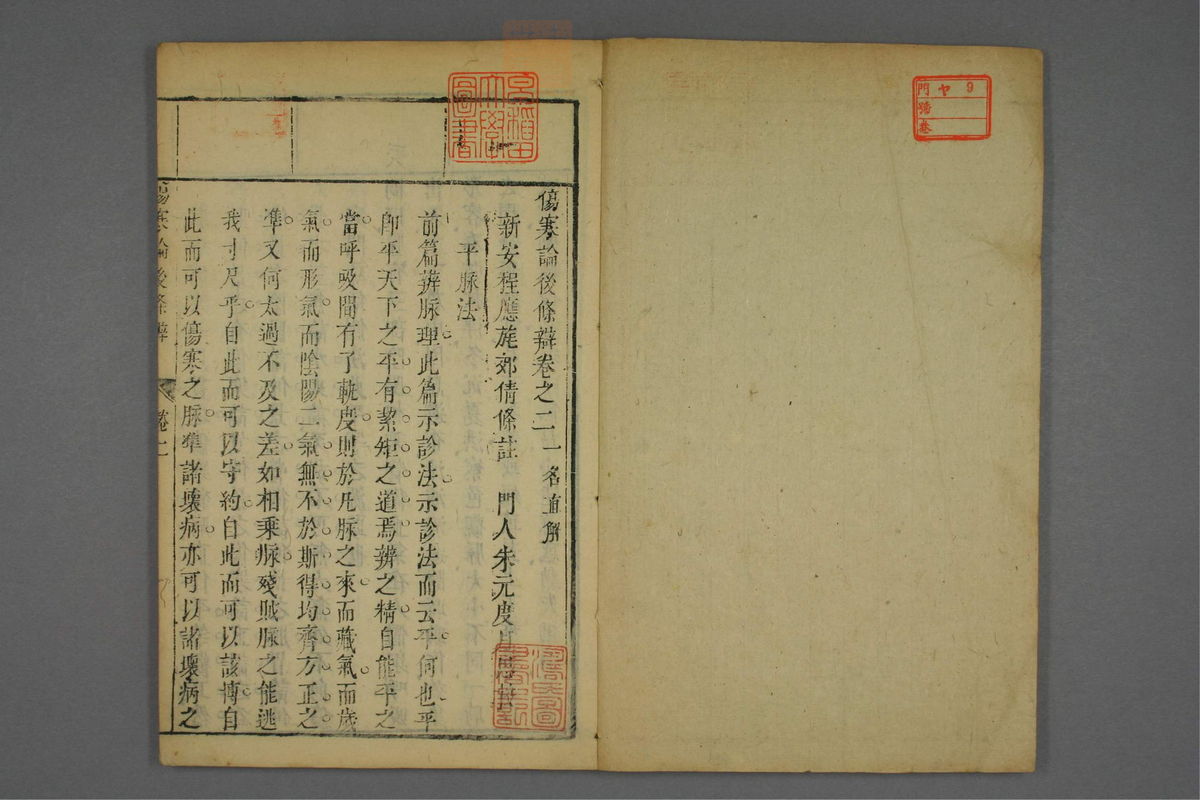 門 ヤ 9
號
卷
早稲田
大學
圖書
傷寒論後條辯卷之二 一名直解
新安程應旄郊倩條註 門人朱元度
平脉法
前篇辨脉理此篇示診法示診法而云平何也平
即平天下之平有絜矩之道焉辨之精自能平之
當呼吸間有了軌度則於凡脉之來而藏氣而歲
氣而形氣而陰陽二氣無不於斯得均齊方正之
準又何太過不及之差如相乘脉殘賊脉之能逃
我寸尺乎自此而可以守約自此而可以該博自
此而可以傷寒之脉準諸壞病亦可以諸壞病之
傷寒論後條辨 卷二